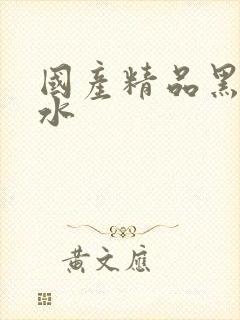 國產精品黑
水
黃文應